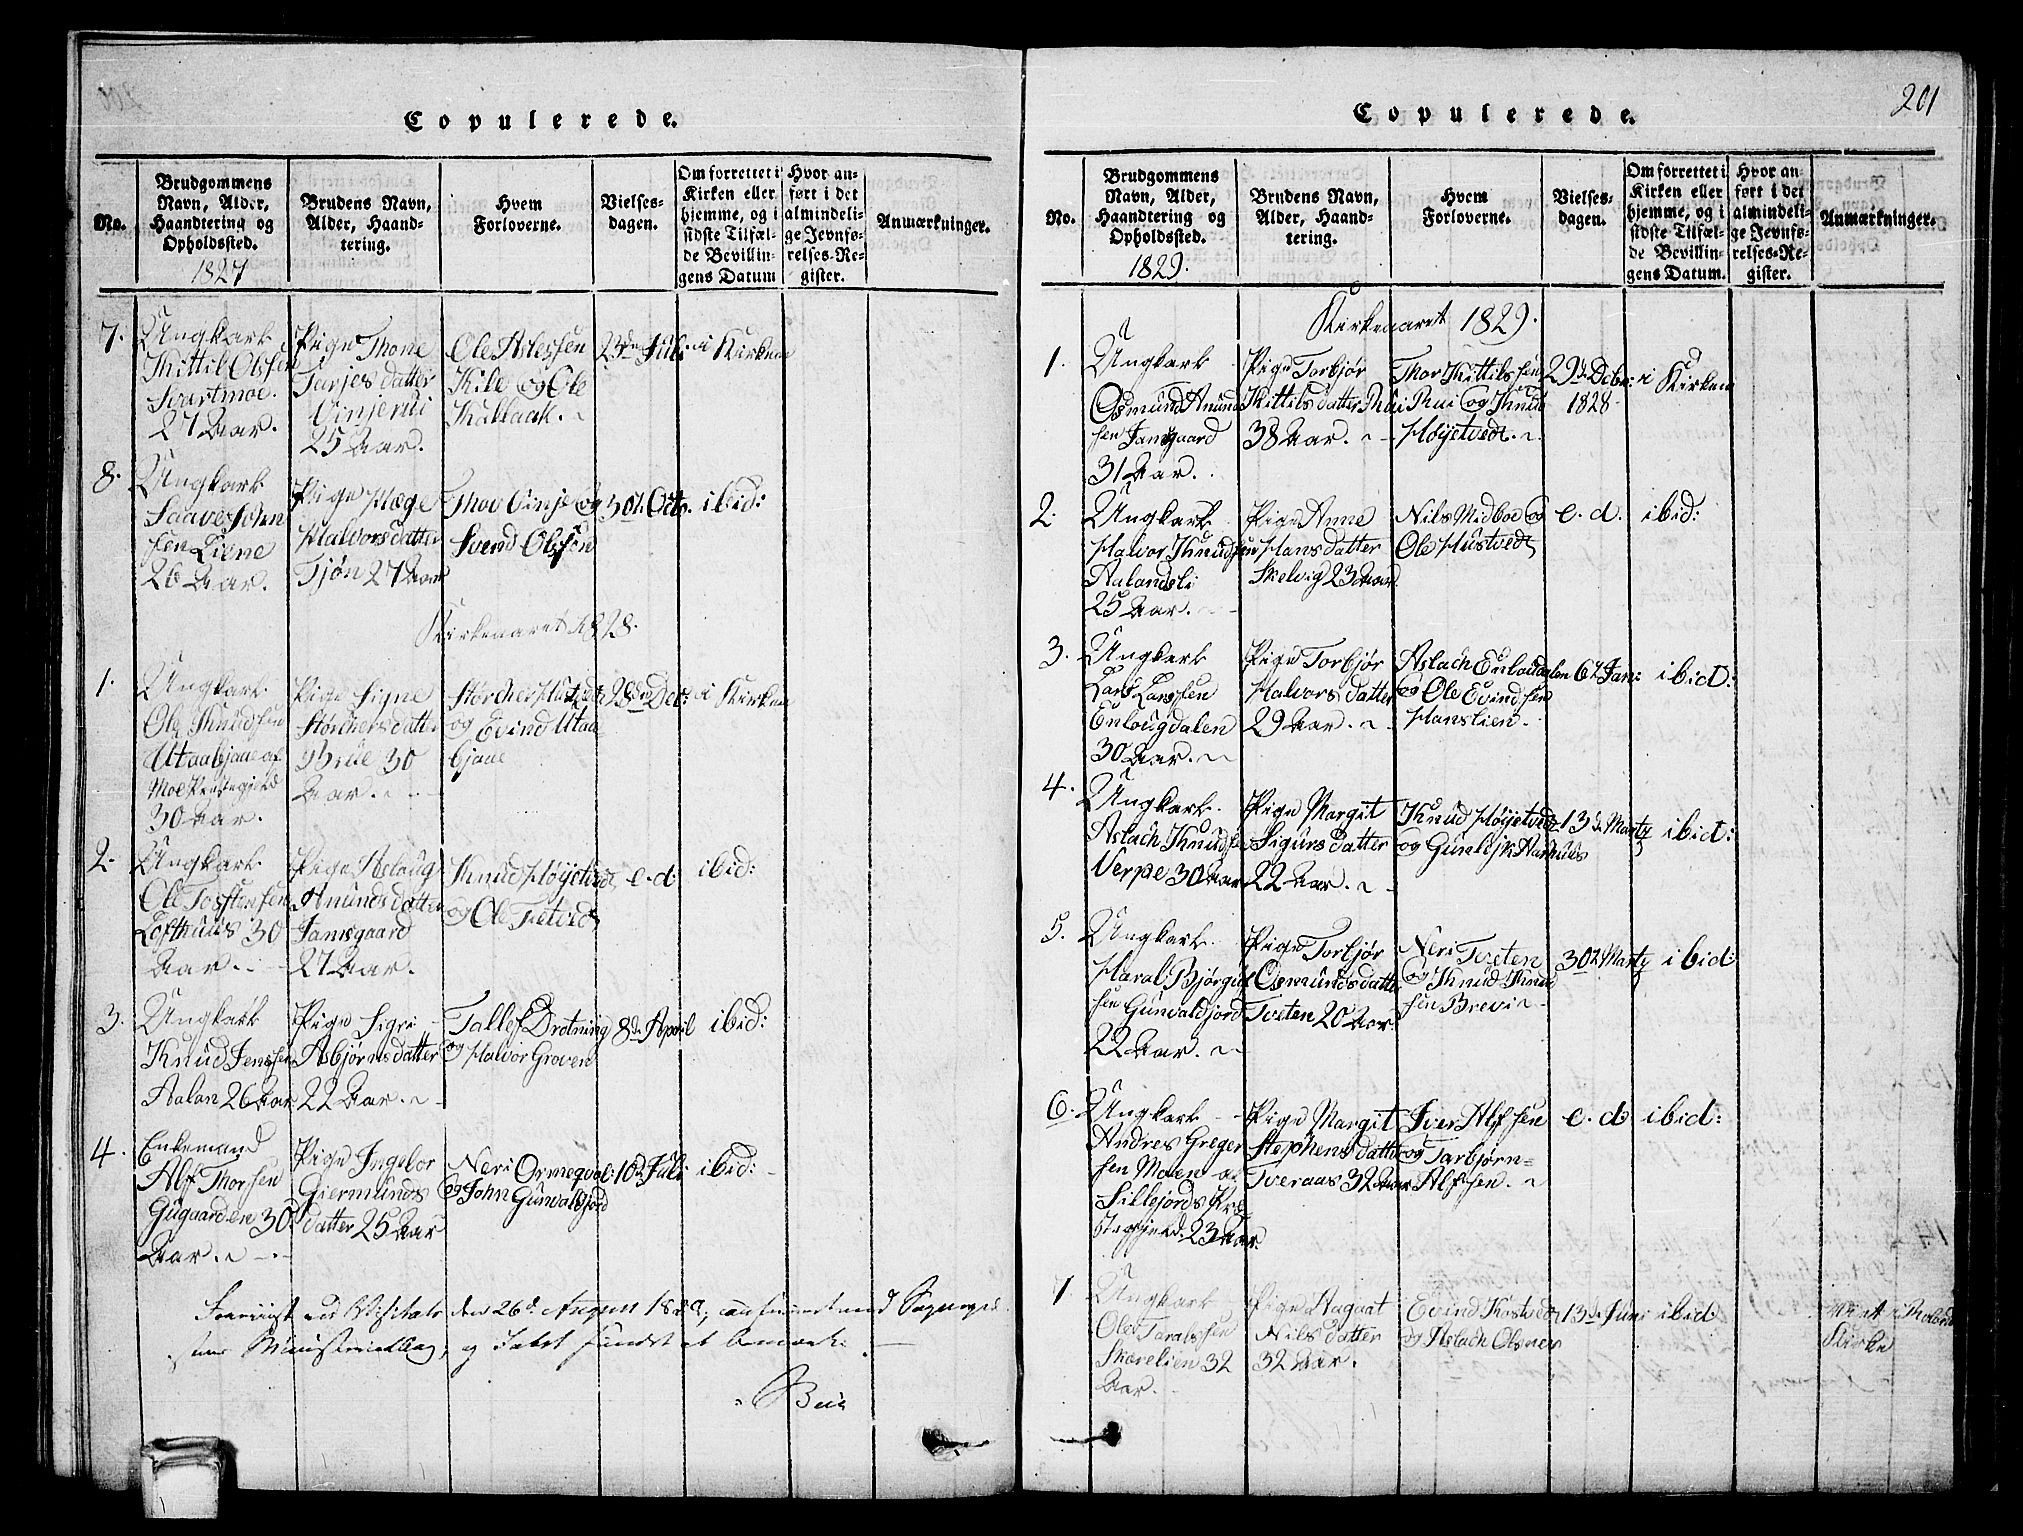 Copulerede.
No.
Brudgommens Navn, Alder, Haandtering og Opholdssted.
Brudens Navn, Alder, Haandtering.
Hvem Forloverne.
Vielsesdagen.
Om forrettet i Kirken eller hjemme, og i sidste Tilfælde Bevillingens Datum
Hvor anført i det almindelige Jevnførelses-Register.
Anmærkninger.
1827
7.
Ungkarl
Kittil Olssen
Svartmoe.
27 Aar.
Pige Thone
Tarjes datter
Vinjerui
25 Aar.
Ole Aslessen
Kile og Ole
Kalbaak.
23de Juli
i Kirken
8.
Ungkarl
Saave John
sen Liene
26 Aar.
Pige Hæge
Halvors datter
Tjøn 27 Aar
Thov Vinje og
Svend Olssen
30d Octb.
ibid:
Kirkeaaret 1828.
1.
Ungkarl
Ole Knudsen
Utaabjaae af
Moe Præstegield
30 Aar.
Pige Signe
Størchers datter
Brue 30
Aar.
Størcher
og Evind Utaa
bjaae
28de Dec:
i Kirken
2.
Ungkarl
Ole Torstensen
Lofthuus 30
Aar.
Pige Aslaug
Anunds datter
Jamsgaard
27 Aar.
Knud Høystvedt
og Ole Tvetvedt
e. d.
ibid:
3.
Ungkarl
Knud Jenssen
Aalan 26 Aar
Pige Sigri
Asbjørns datter
22 Aar.
Tallef Drotning
og Halvor Groven
8de April
ibid:
4.
Enkemand
Alf Thorsen
Gugaarden 30
Aar.
Pige Ingebor
Giermunds
datter 25 Aar
Neri Ormeqval:
og John Gunvaldjord
10de Juli
ibid:
Foreviist ved Visitats den 26d August 1829,
Ministerialbog, og Intet fundet at bemærke.
Copulerede.
201
No.
Brudgommens Navn, Alder, Haandtering og Opholdssted.
Brudens Navn, Alder, Haandtering.
Hvem Forloverne.
Vielsesdagen.
Om forrettet i Kirken eller hjemme, og i sidste Tilfælde Bevillingens Datum.
Hvor anført i det almindelige Jevnførelses-Register.
Anmærkninger.
1829.
Kirkeaaret 1829.
1.
Ungkarl
Osmund Anund
sen Jamsgaard
31 Aar.
Pige Torbjør
Kittils datter Rui
38 Aar.
Thor Kittilssen
Rui og Knud
Høystvedt.
29de Decbr:
1828
i Kirken
2.
Ungkarl
Halvor Knudsen
Aalandsli
25 Aar.
Pige Anne
Hans datter
Skelvig 23 Aar
Nils Midboe og
Ole Hustvedt
e. d.
ibid:
3.
Ungkarl
Lars Larssen
Enlougdalen
30 Aar.
Pige Torbjør
Halvors datter
29 Aar.
Aslach Enlaudalen
og Ole Evindsen
Hanslien
6d Jan:
ibid:
4.
Ungkarl.
Aslach Knudsen
Verpe 30 Aar
Pige Margit
Sigurs datter
22 Aar.
Knud Høystvedt
og Gunlejk Aarhuus
13de Marty
ibid:
5.
Ungkarl.
Haral Bjørguf
sen Gunvaldjord
22 Aar.
Pige Torbjør
Osmunds datter
Tveten 20 Aar
Neri Tveten
og Knud Knud
sen Brevi
30d Marty
ibid:
6.
Ungkarl
Andres Greger
sen Moen af
Sillejords Præ
stegjeld: 23 Aar.
Pige Margit
Stephens datter
Tveraas 32 Aar
Iver Alfsen
og Tarbjørn
Alfsen.
e. d
ibid:
7
Ungkarl
Ole Taralssen
Skarelien 32
Aar.
Pige Aagaat
Nils datter
32 Aar.
Evind Kostvedt
og Aslach Olsnes
13de Juni
ibid
Kirke